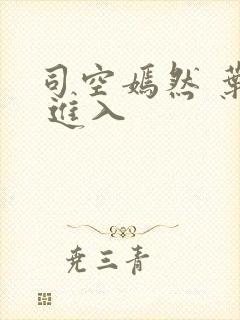 司空嫣然 葉
進入
尧三青